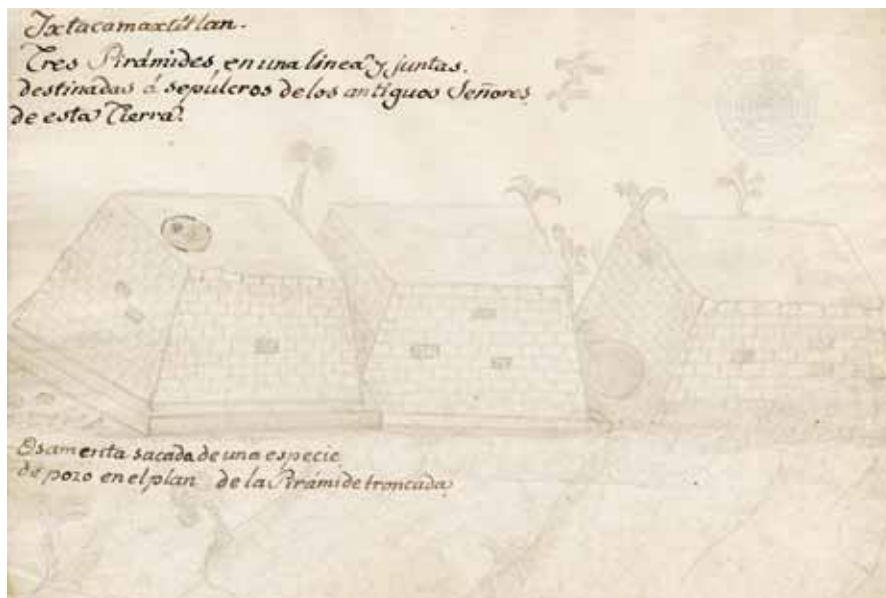 Ixtacamaxtitlan.
Tres Pirámides, en una linea, y juntas,
destinadas á sepulcros de los antiguos Señores
de esta Tierra.
Osamenta sacada de una especie
de pozo en el plan de la Pirámide troncada